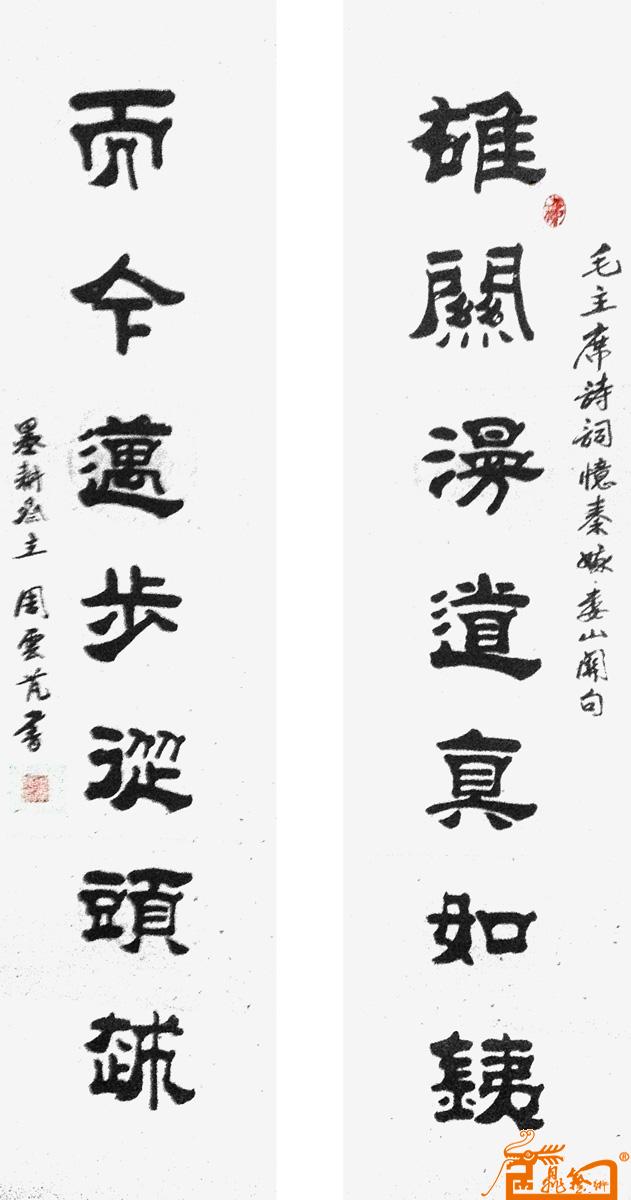 毛主席詩詞憶秦娥·婁山關句
雄關漫道真如銕
而今邁步從頭越
墨耕齋主 周雲芃書